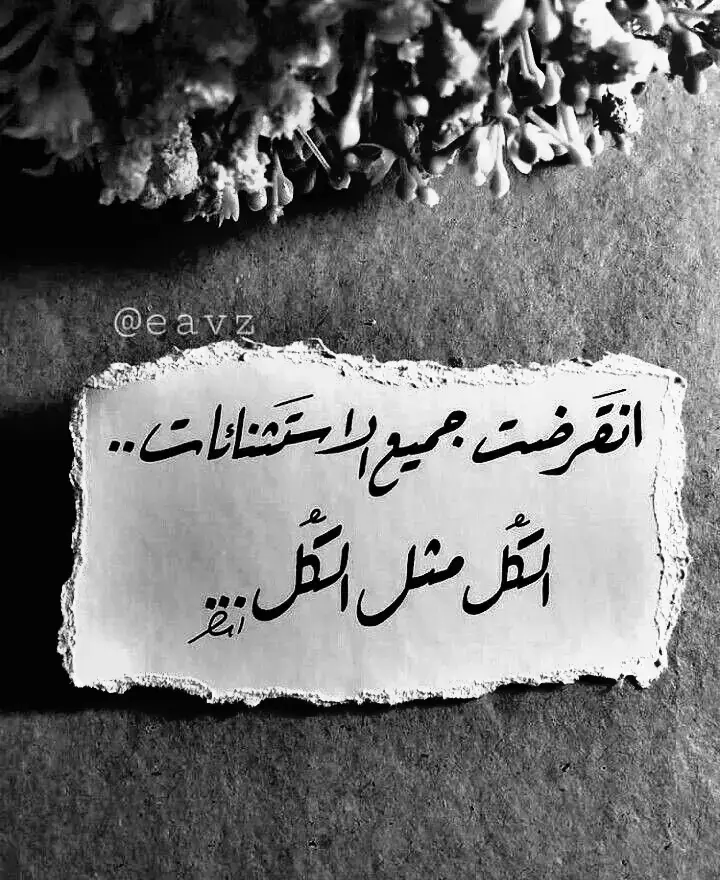 @eavz
انقَرضت جميع الاستَثنائات..
الكُل مثل الكُل...